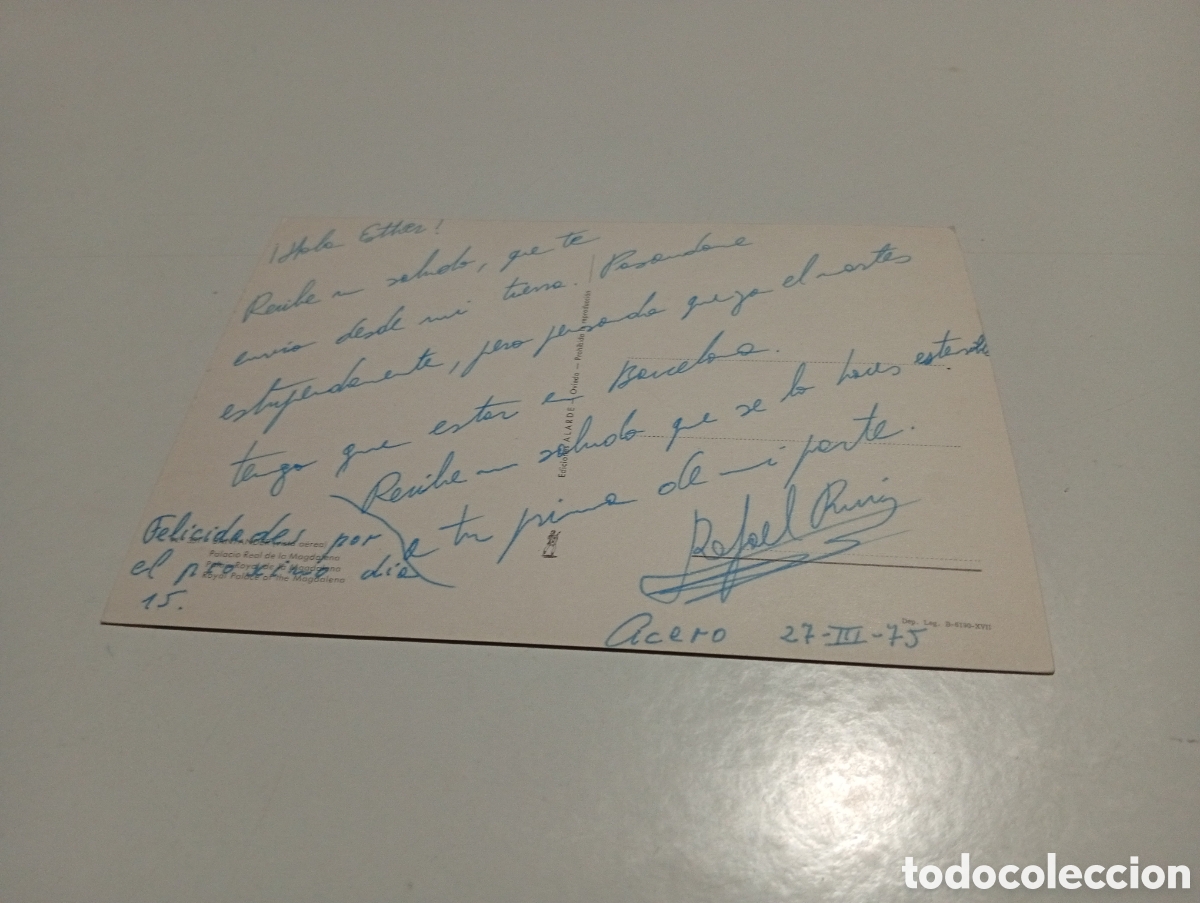 ¡Hola Esther!
Recibe un saludo, que te
envio desde mi tierra. Pasandome
estupendamente, pero pensando que ya el martes
tengo que estar en Barcelona.
Recibe un saludo que se lo haces
a tu prima de mi parte.
Rafael Ruiz
Felicidades por
el proximo dia
15.
Acero 27-III-75
Palacio Real de la Magdalena
Royal Palace of the Magdalena
Ediciones ALARDE - Oviedo - Prohibida la reproducción
Dep. Leg. B-8130-XVII
todocoleccion